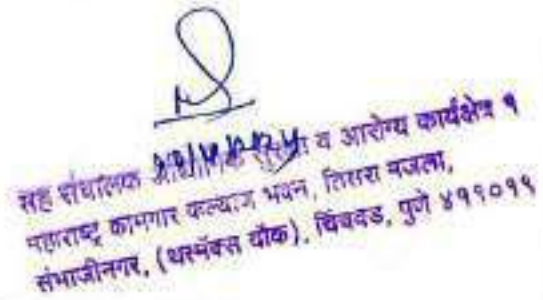 सह संचालक व आरोग्य कार्यक्षेत्र १
महाराष्ट्र कामगार कल्याण भवन, तिसरा मजला,
संभाजीनगर, (थरमॅक्स चौक), चिंचवड, पुणे ४११०१९